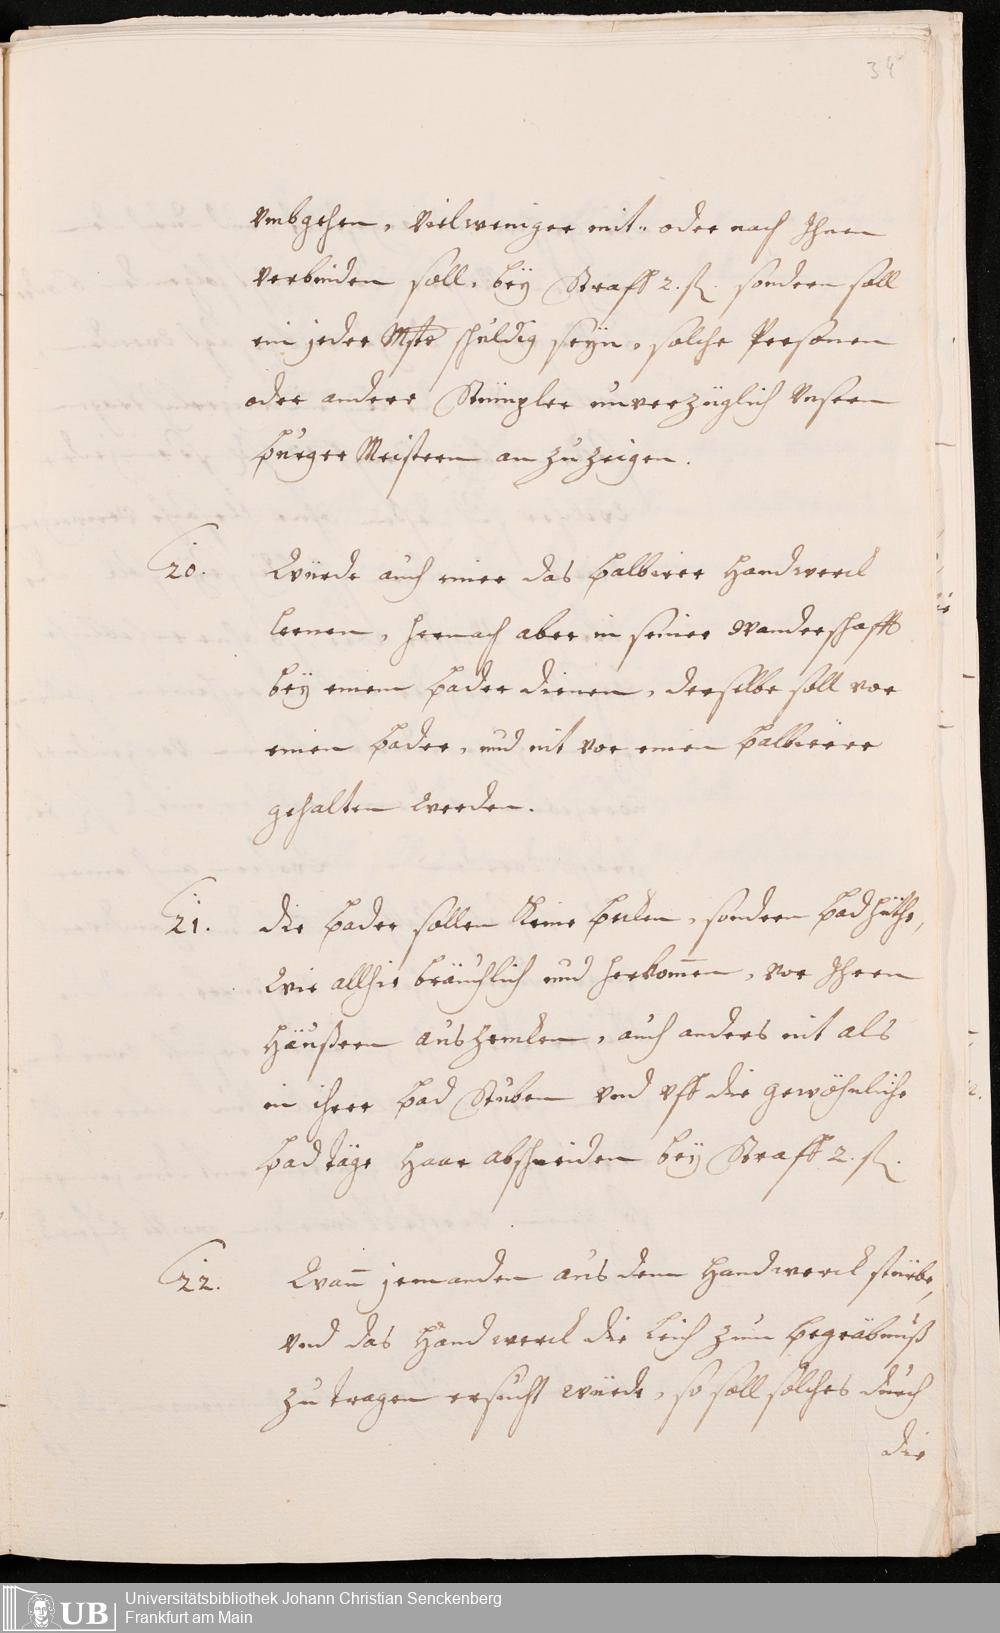 34
Vmbgehen, Vielweniger mit- oder nach Ihnen
verbinden soll, beÿ Straff 2. fl. sondern soll
ein jeder Mstr schuldig seÿn, solche Personen
oder andere Stümpler unverzüglich Vnsern
Burger Meistern an zu zeigen.
20. Würde auch einer das Balbierer Handwerck
lernen, hernach aber in seiner Wanderschafft
beÿ einem Bader dienen, derselbe soll vor
einen Bader, und nit vor einen Balbierer
gehalten werden.
21. Die Bader sollen Keine Becken, sondern Badhüthe,
Wie allhie bräuchlich und herkom̅en, vor Ihren
Häußern aushencken, auch anders nit als
in ihrer Bad Stuben Vnd Vff die gewöhnliche
Bad täge Haar abschneiden beÿ Straff 2. fl.
22. Wan̅ jemanden aus dem Handwerck stürbe,
Vnd das Handwerck die Leich zum Begräbnuß
zu tragen ersucht würde, so soll solches durch
die
Universitätsbibliothek Johann Christian Senckenberg
Frankfurt am Main
UB